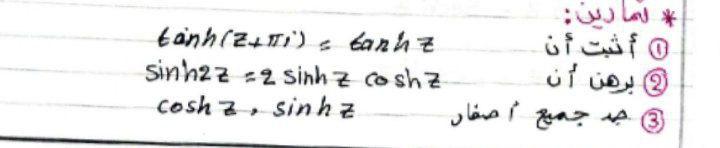 * تمارين:
① أثبت أن tanh(z+πi) = tanh z
② برهن أن sinh2z = 2 sinh z cosh z
③ جد جميع أصفار cosh z , sinh z